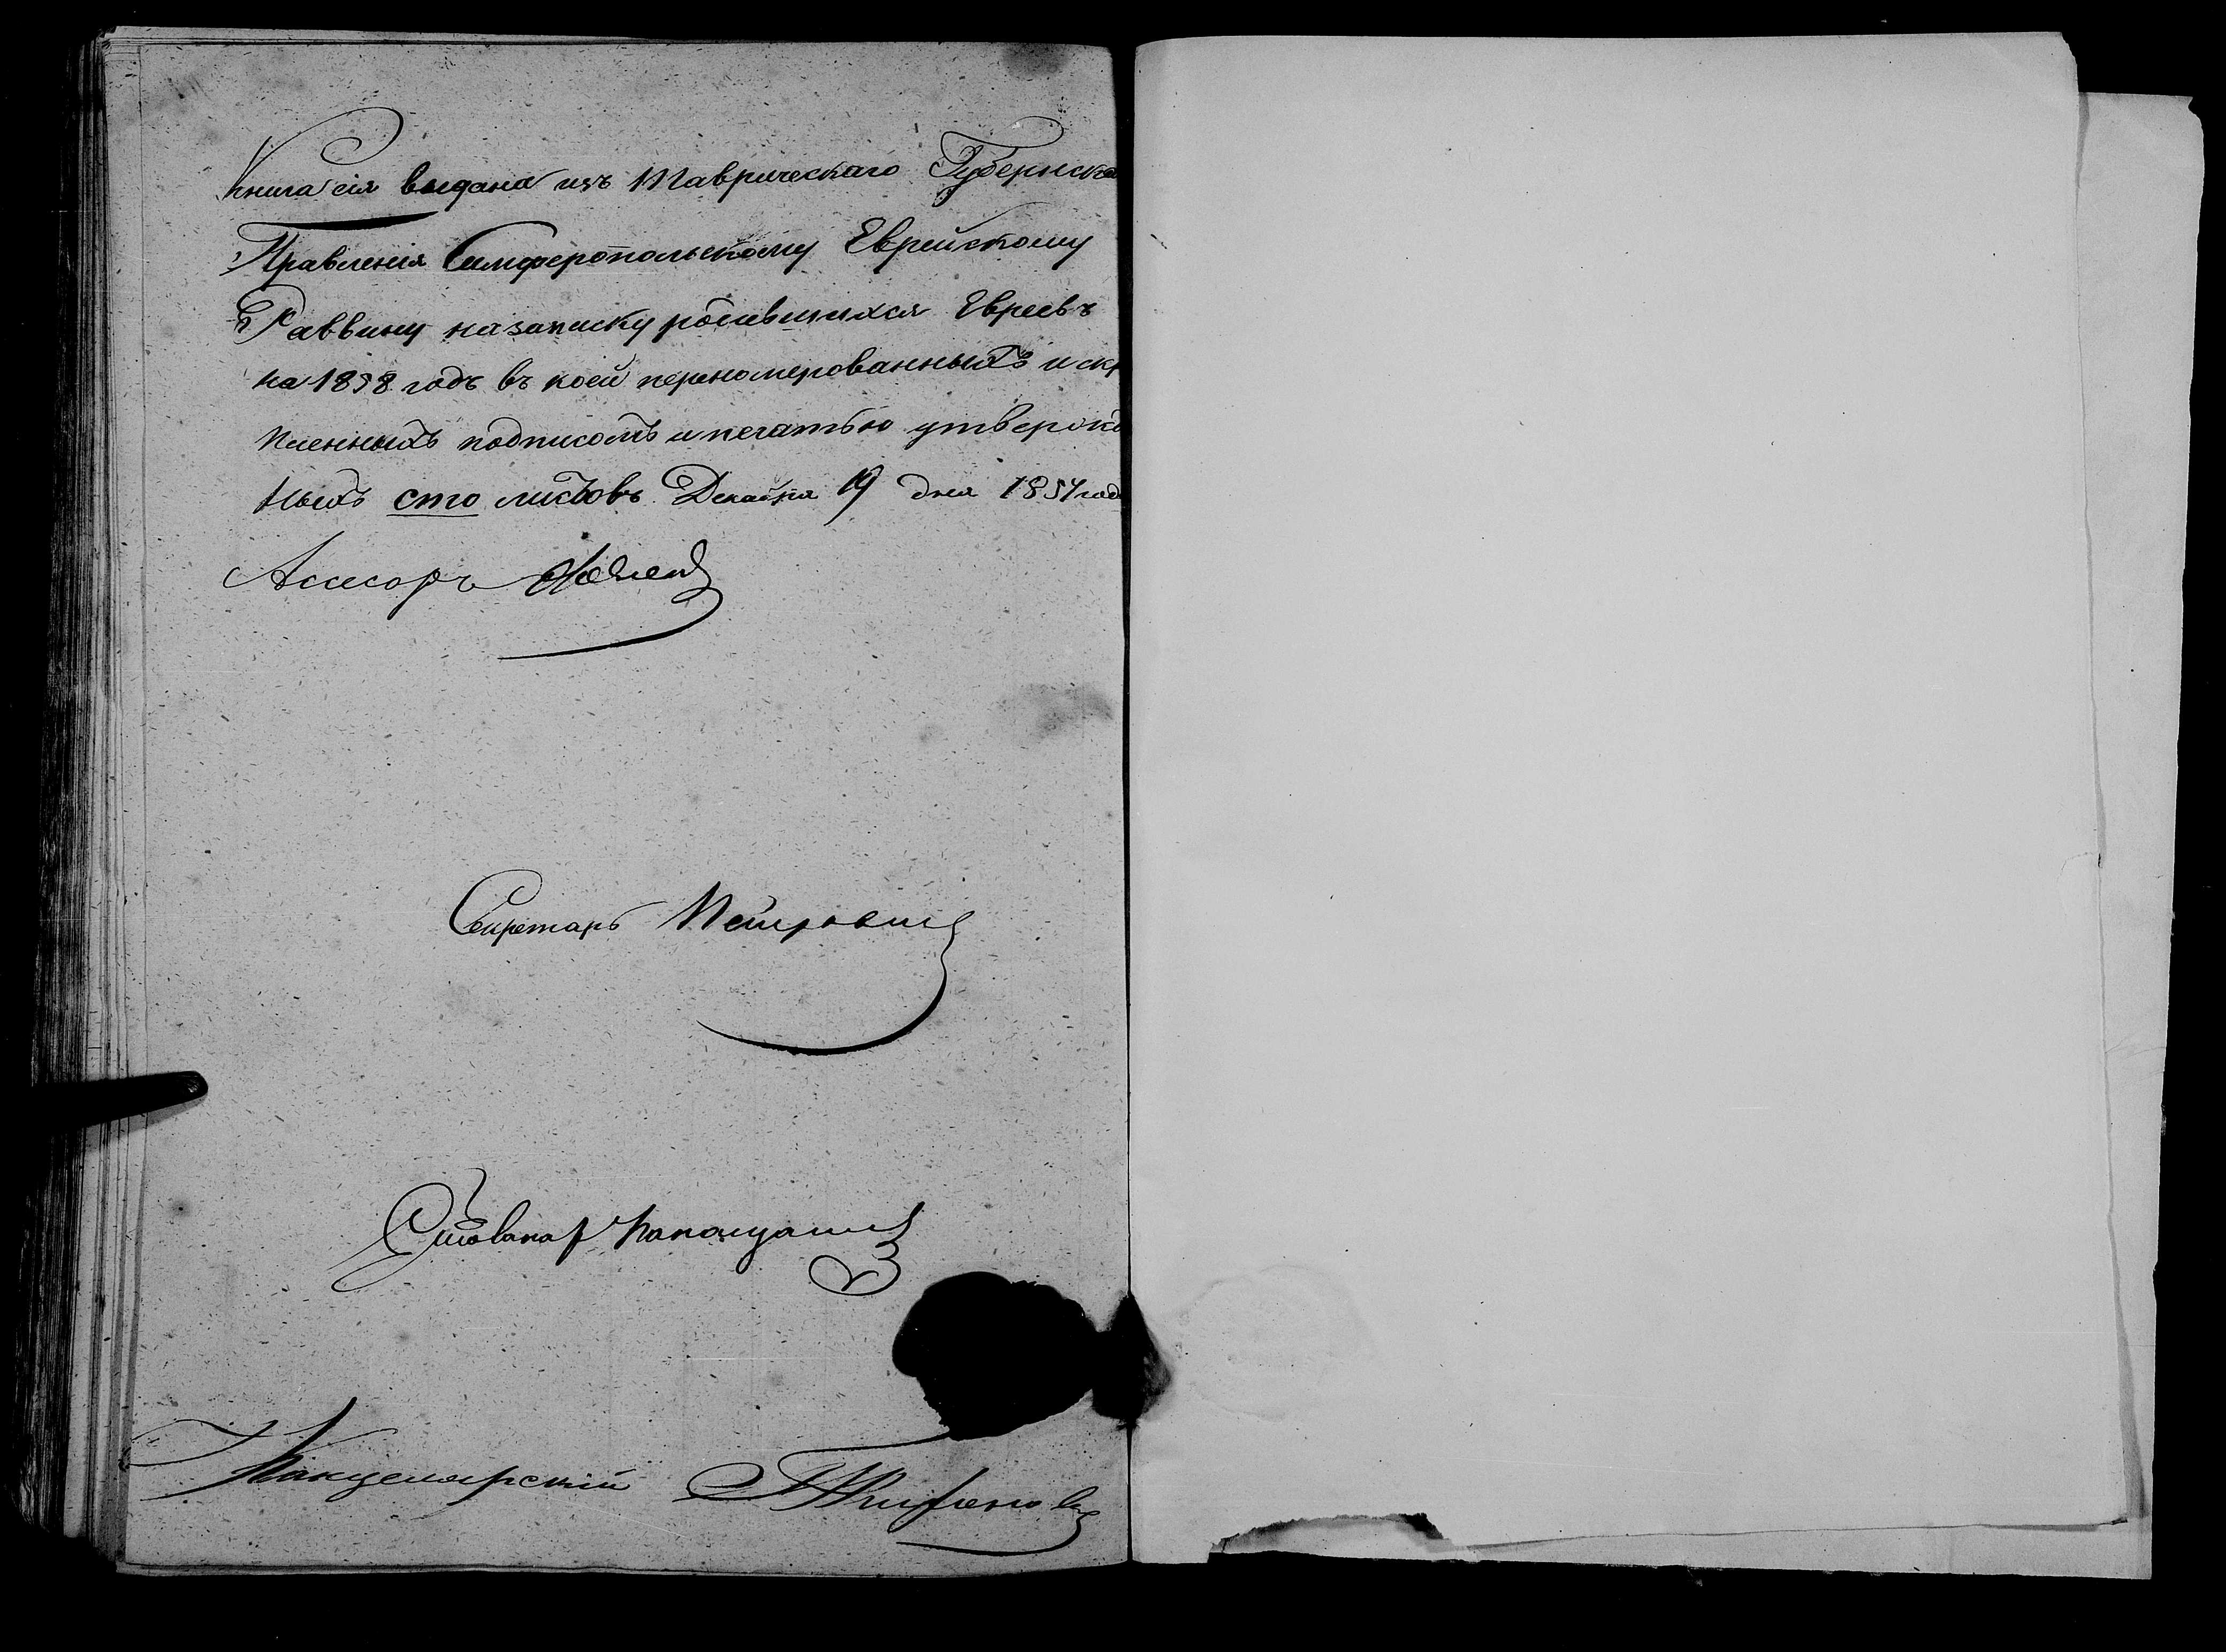 Книга сія выдана изъ Таврическаго Губернска
Правленія Симферопольскому Еврейскому
Раввину на записку родившихся Евреевъ
на 1858 годъ въ коей перенумерованныхъ и скр
пленныхъ подписомъ и печатью утвержд
ныхъ сто листовъ Декабря 19 дня 1857 год
Ассесоръ
Секретарь Петровичь
Канцелярскій